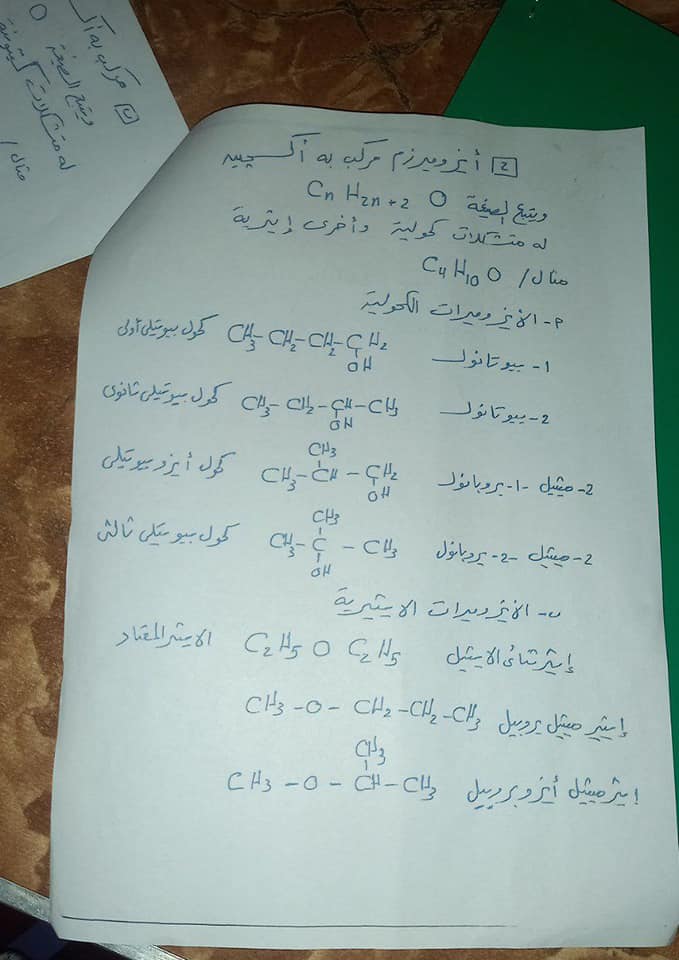 مركب به أك
ويتبع الصيغة O
له متشكلات كيتونية
مثال /
2 أيزوميرزم مركب به أكسجين
ويتبع الصيغة CnH2n+2 O
له متشكلات كحولية وأخرى إيثرية
مثال / C4H10O
P- الأيزوميرات الكحولية
1- بيوتانول CH3-CH2-CH2-CH2 كحول بيوتيلى أولى
OH
2- بيوتانول CH3-CH2-CH-CH3 كحول بيوتيلى ثانوى
OH
CH3
2- ميثيل -1- بروبانول CH3-CH-CH2 كحول أيزوبيوتيلى
OH
CH3
2- ميثيل -2- بروبانول CH3-C-CH3 كحول بيوتيلى ثالثى
OH
ب- الأيزوميرات الايثيرية
إيثر ثنائى الايثيل C2H5 O C2H5 الايثر المعتاد
إيثير ميثيل بروبيل CH3-O-CH2-CH2-CH3
CH3
إيثر ميثيل أيزوبروبيل CH3-O-CH-CH3